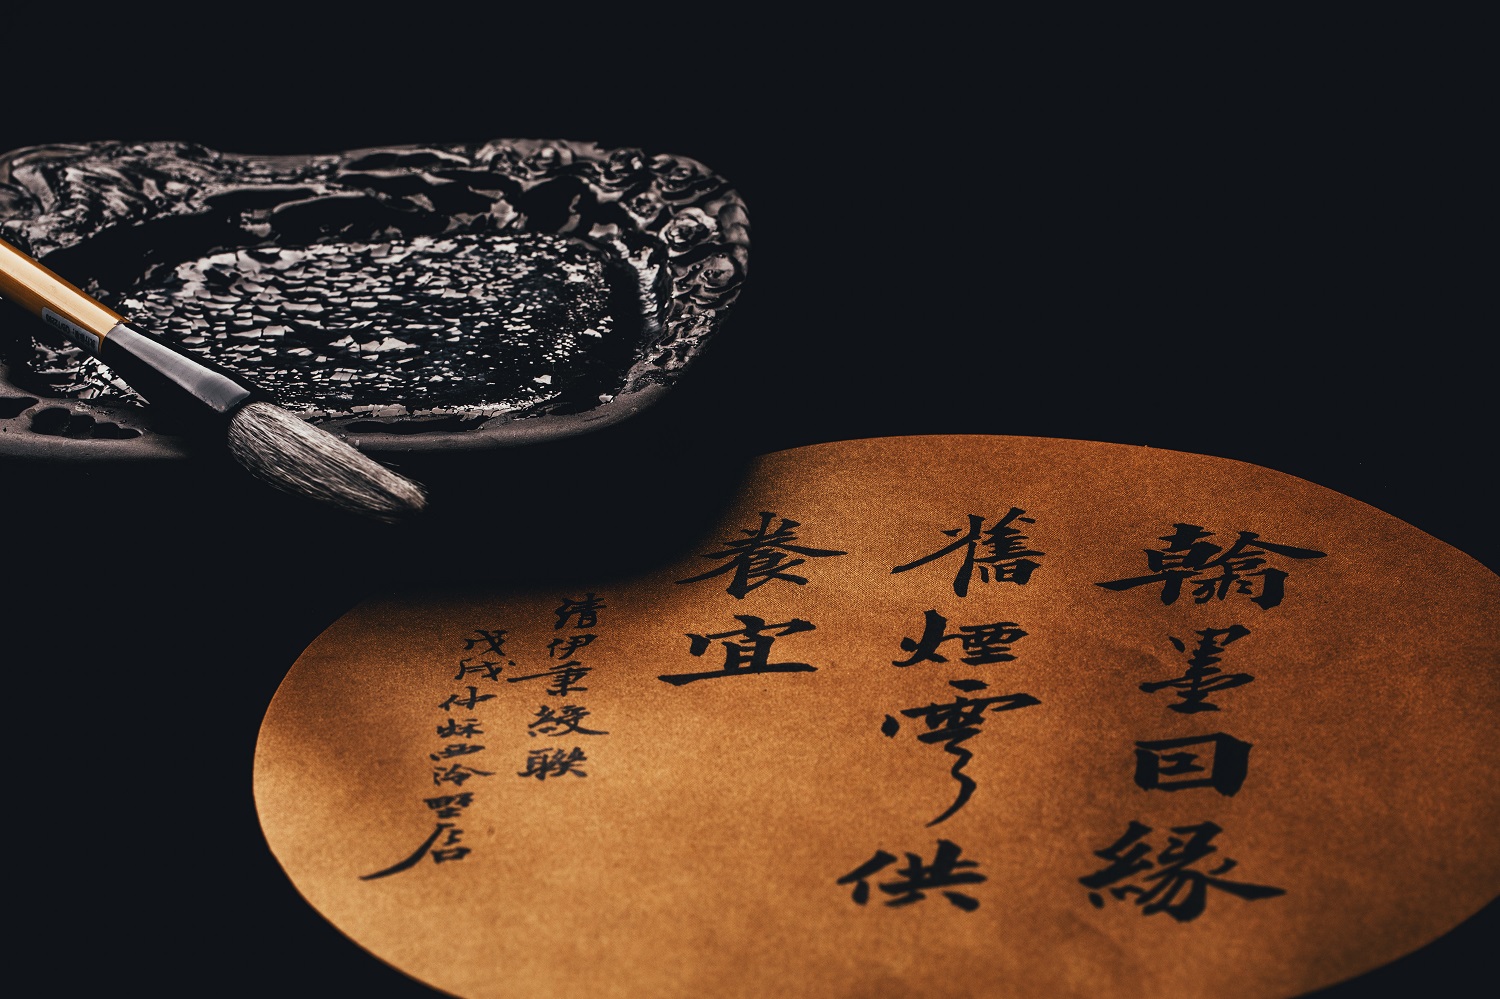 翰墨回緣
舊煙雲供
養宜
清伊秉綬聯
戊戌仲秌西泠墅居